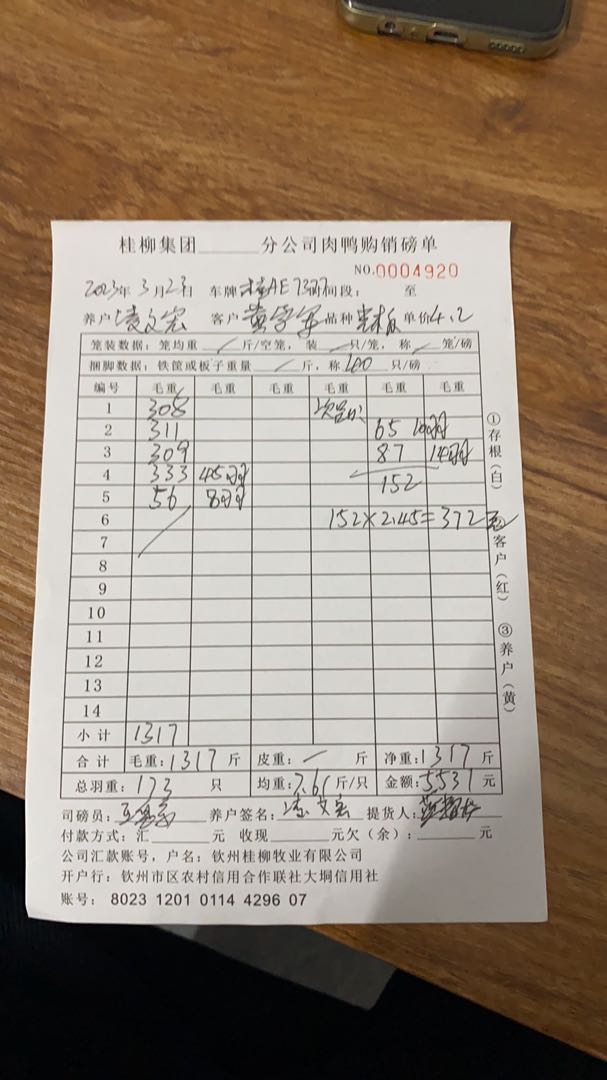 桂柳集团______分公司肉鸭购销磅单
NO.0004920
2023年3月23日 车牌 AE 时间段: 至
养户 凌文宏 客户 黄 品种 单价4.2
笼装数据: 笼均重 / 斤/空笼, 装 / 只/笼, 称 / 笼/磅
捆脚数据: 铁筐或板子重量 / 斤, 称100只/磅
编号 毛重 毛重 毛重 毛重 毛重 毛重
1 308
2 311 65 10羽
3 309 87 14羽
4 333 45羽 152
5 56 8羽
6 152×2.45=372元
7
8
9
10
11
12
13
14
小计 1317
合计 毛重:1317斤 皮重: / 斤 净重:1317斤
总羽重:173只 均重:7.61斤/只 金额:5531元
司磅员: 养户签名:凌文宏 提货人:
付款方式:汇______元 收现______元欠(余):______元
公司汇款账号,户名:钦州桂柳牧业有限公司
开户行:钦州市区农村信用合作联社大垌信用社
账号: 8023 1201 0114 4296 07
①存根(白)
②客户(红)
③养户(黄)